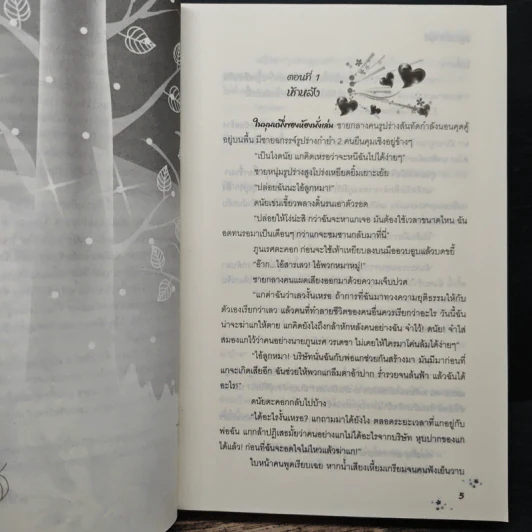 ตอนที่ 1
หักหลัง
ในมุมหนึ่งของห้องนั่งเล่น ชายกลางคนรูปร่างสันทัดกำลังนอนคุดคู้
อยู่บนพื้น มีชายฉกรรจ์รูปร่างกำยำ 2 คนยืนคุมเชิงอยู่ข้างๆ
“เป็นไงดนัย แกคิดเหรอว่าจะหนีฉันไปได้ง่ายๆ”
ชายหนุ่มรูปร่างสูงโปร่งเหยียดยิ้มเยาะเย้ย
“ปล่อยฉันนะไอ้ลูกหมา!”
ดนัยเข่นเขี้ยวพลางดิ้นรนเอาตัวรอด
“ปล่อยให้โง่น่ะสิ กว่าฉันจะหาแกเจอ มันต้องใช้เวลาขนาดไหน ฉัน
อดทนรอมาเป็นเดือนๆ กว่าแกจะซมซานกลับมาที่นี่”
ภูนเรศตะคอก ก่อนจะใช้เท้าเหยียบลงบนมืออวบอูมแล้วบดขยี้
“อ๊าก...ไอ้สารเลว! ไอ้พวกหมาหมู่!”
ชายกลางคนแผดเสียงออกมาด้วยความเจ็บปวด
“แกด่าฉันว่าเลวงั้นเหรอ ถ้าการที่ฉันมาทวงความยุติธรรมให้กับ
ตัวเองเรียกว่าเลว แล้วคนที่ทำลายชีวิตของคนอื่นควรเรียกว่าอะไร วันนี้ฉัน
น่าจะฆ่าแกให้ตาย แกคิดยังไงถึงกล้าหักหลังคนอย่างฉัน จำไว้! ดนัย! จำใส่
สมองแกไว้ว่าคนอย่างนายภูนเรศ วรเดชา ไม่เคยให้ใครมาโค่นล้มได้ง่ายๆ”
“ไอ้ลูกหมา! บริษัทนั่นฉันกับพ่อแกช่วยกันสร้างมา มันมีมาก่อนที่
แกจะเกิดเสียอีก ฉันช่วยให้พวกแกลืมตาอ้าปาก ร่ำรวยจนล้นฟ้า แล้วฉันได้
อะไร!”
ดนัยตะคอกกลับไปบ้าง
“ได้อะไรงั้นเหรอ? แกถามมาได้ยังไง ตลอดระยะเวลาที่แกอยู่กับ
พ่อฉัน แกกล้าปฏิเสธมั้ยว่าคนอย่างแกไม่ได้อะไรจากบริษัท หุบปากของแก
ได้แล้ว! ก่อนที่ฉันจะอดใจไม่ไหวแล้วฆ่าแก!”
ใบหน้าคนพูดเรียบเฉย หากน้ำเสียงเหี้ยมเกรียมจนคนฟังเย็นวาบ
5